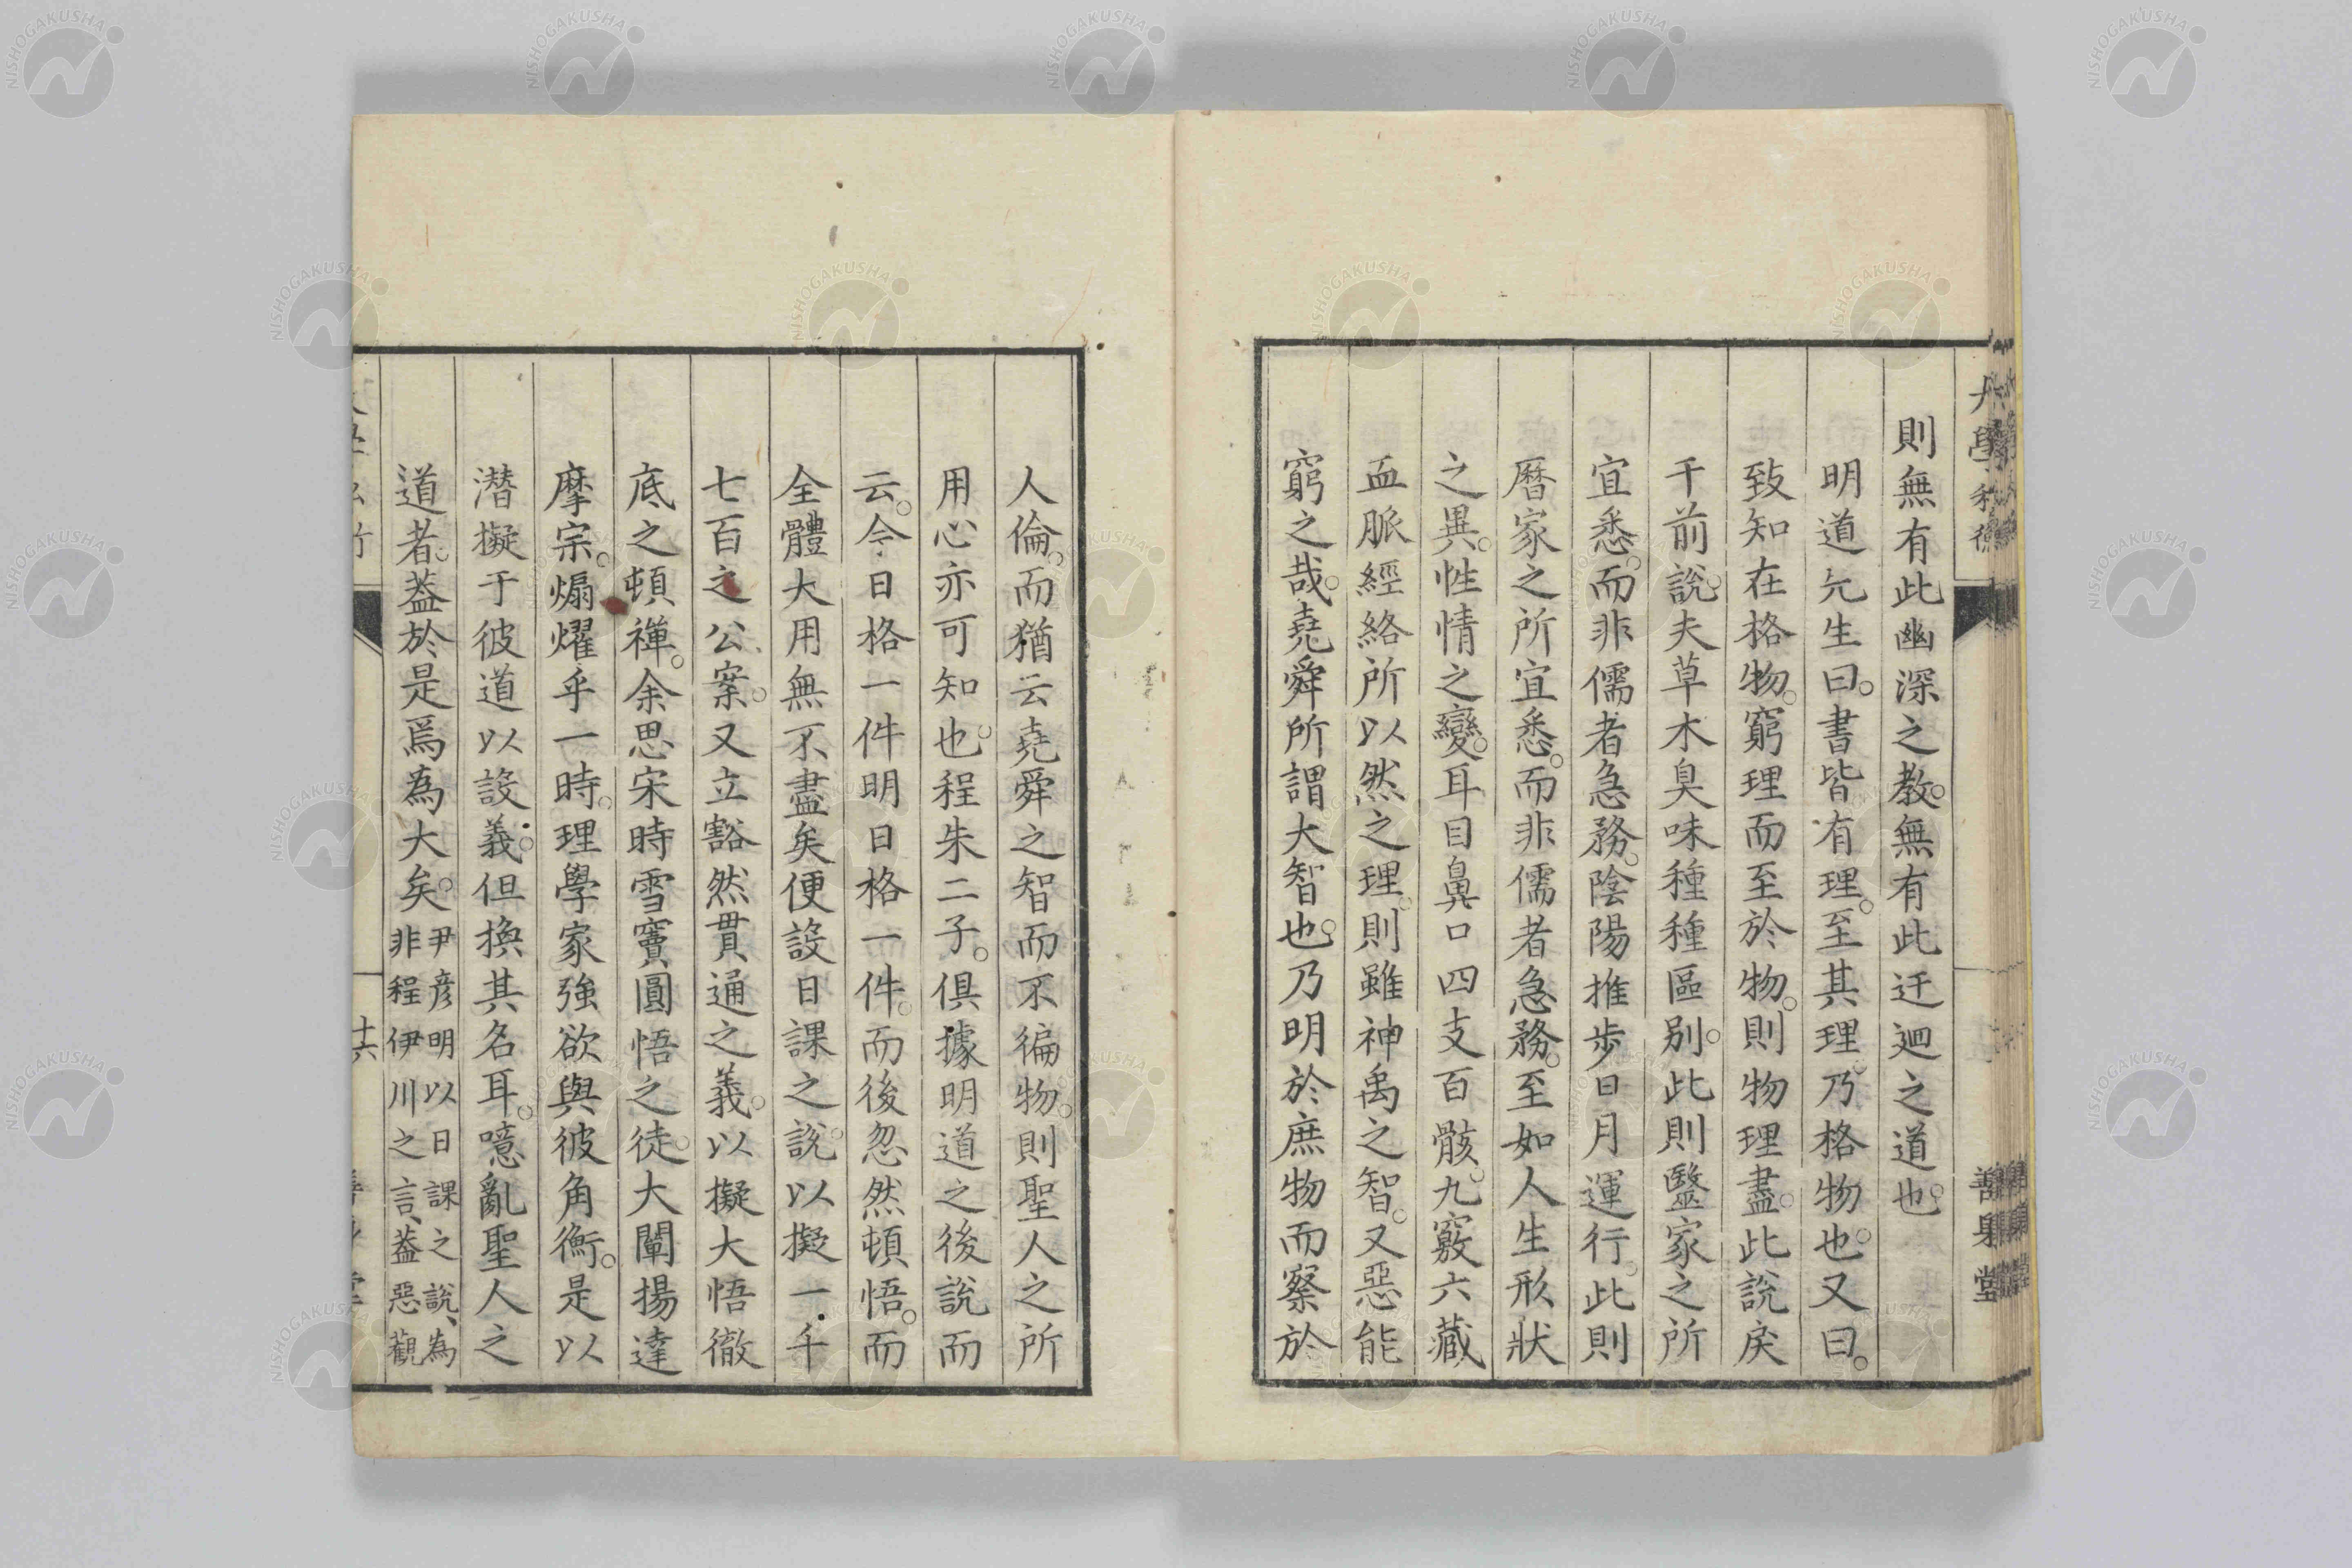 則無有此幽深之教。無有此迂𢌞之道也。
明道先生曰。書皆有理。至其理。乃格物也。又曰。
致知在格物。窮理而至於物。則物理盡。此說戾
于前說。夫草木臭味種種區別。此則毉家之所
宜悉。而非儒者急務。陰陽推步日月運行。此則
曆家之所宜悉。而非儒者急務。至如人生形狀
之異。性情之變。耳目鼻口四支百骸。九竅六藏
血脈經絡所以然之理。則雖神禹之智。又惡能
窮之哉。堯舜所謂大智也。乃明於庶物而察於
人倫。而猶云堯舜之智而不徧物。則聖人之所
用心亦可知也。程朱二子。俱據明道之後說而
云。今日格一件明日格一件。而後忽然頓悟。而
全體大用無不盡矣便設日課之說。以擬一千
七百之公案。又立豁然貫通之義。以擬大悟徹
底之頓禪。余思宋時雪竇圓悟之徒。大闡揚達
摩宗。煽燿乎一時。理學家強欲與彼角衡。是以
潛擬于彼道以設義。但換其名耳。噫亂聖人之
道者。蓋於是焉為大矣。
尹彦明以日課之說、為
非程伊川之言、蓋惡觀
十六
善身堂